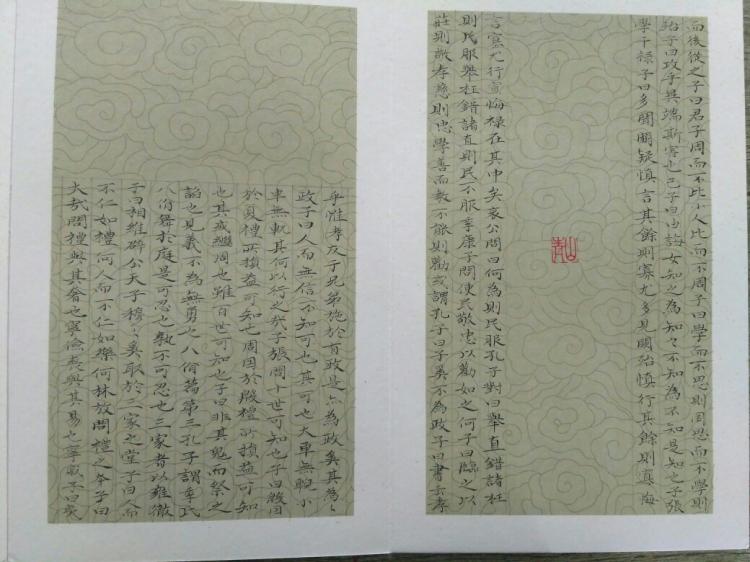 而後從之子曰君子周而不比小人比而不周子曰學而不思則罔思而不學則
殆子曰攻乎異端斯害也已子曰由誨女知之為知々不知為不知是知也子張
學干禄子曰多聞闕疑慎言其餘則寡尤多見闕殆慎行其餘則寡悔
青山
言寡尤行寡悔禄在其中矣哀公問曰何為則民服孔子對曰舉直錯諸枉
則民服舉枉錯諸直則民不服季康子問使民敬忠以勸如之何子曰臨之以
莊則敬孝慈則忠學善而教不能則勸或謂孔子曰子奚不為政子曰書云孝
乎惟孝友于兄弟施於有政是亦為政奚其為々
政子曰人而無信不知可也其可也大車無輗小
車無軏其何以行之哉子張問十世可知也子曰殷因
於夏禮所損益可知也周因於殷禮所損益可知
也其或繼周也雖百世可知也子曰非其鬼而祭之
諂也見義不為無勇之八佾篇第三孔子謂季氏
八佾舞於庭是可忍也孰不可忍也三家者以雍徹
子曰相維辟公天子穆々奚取於三家之堂子曰人而
不仁如禮何人而不仁如樂何林放問禮之本子曰
大哉問禮與其奢也寧儉喪與其易也寧戚子曰夷